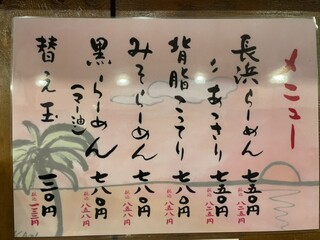 メニュー
長浜らーめん 七五〇円
税込 八二五円
〃 あっさり 七五〇円
税込 八二五円
背脂こってり 七八〇円
税込 八五八円
みそらーめん 七八〇円
税込 八五八円
黒らーめん (マー油) 七八〇円
税込 八五八円
替え玉 一三〇円
税込 一四三円